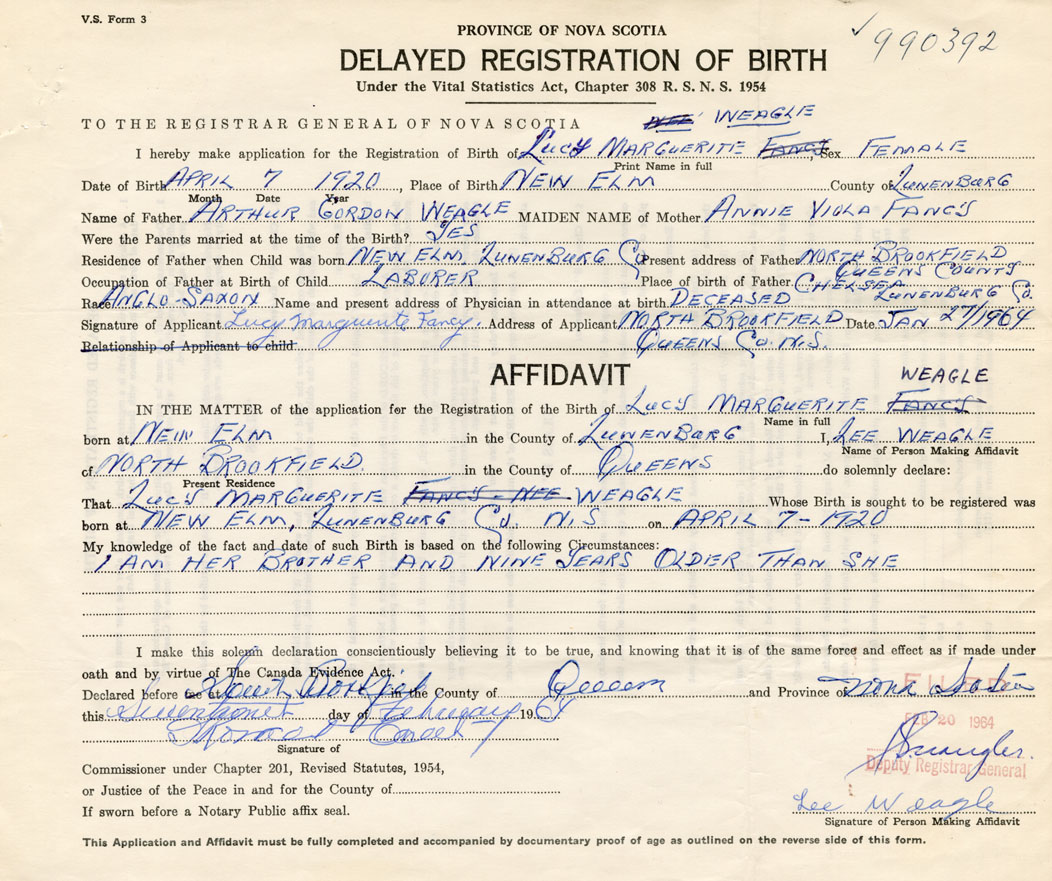 V.S. Form 3
✓990392
PROVINCE OF NOVA SCOTIA
DELAYED REGISTRATION OF BIRTH
Under the Vital Statistics Act, Chapter 308 R. S. N. S. 1954
TO THE REGISTRAR GENERAL OF NOVA SCOTIA NEE WEAGLE
I hereby make application for the Registration of Birth of LUCY MARGUERITE FANCY Sex FEMALE
Print Name in full
Date of Birth APRIL 7 1920, Place of Birth NEW ELM County of LUNENBURG
Month Date Year
Name of Father ARTHUR GORDON WEAGLE MAIDEN NAME of Mother ANNIE VIOLA FANCY
Were the Parents married at the time of the Birth? YES
Residence of Father when Child was born NEW ELM LUNENBURG Co Present address of Father NORTH BROOKFIELD
QUEENS COUNTY
Occupation of Father at Birth of Child LABORER Place of birth of Father CHELSEA
LUNENBURG Co.
Race ANGLO-SAXON Name and present address of Physician in attendance at birth DECEASED
Signature of Applicant Lucy Marguerite Fancy. Address of Applicant NORTH BROOKFIELD Date JAN 27/1964
Relationship of Applicant to child QUEENS Co. N.S.
AFFIDAVIT
WEAGLE
IN THE MATTER of the application for the Registration of the Birth of LUCY MARGUERITE FANCY
Name in full
born at NEW ELM in the County of LUNENBURG I, LEE WEAGLE
Name of Person Making Affidavit
of NORTH BROOKFIELD in the County of QUEENS do solemnly declare:
Present Residence
That LUCY MARGUERITE FANCY - NEE WEAGLE Whose Birth is sought to be registered was
born at NEW ELM, LUNENBURG Co. N.S on APRIL 7 - 1920
My knowledge of the fact and date of such Birth is based on the following Circumstances:
I AM HER BROTHER AND NINE YEARS OLDER THAN SHE
I make this solemn declaration conscientiously believing it to be true, and knowing that it is of the same force and effect as if made under
oath and by virtue of The Canada Evidence Act.
Declared before me at in the County of Queens and Province of Nova Scotia
FILED
this day of February 1964
FEB 20 1964
Signature of
Deputy Registrar General
Commissioner under Chapter 201, Revised Statutes, 1954,
or Justice of the Peace in and for the County of
Lee Weagle
If sworn before a Notary Public affix seal.
Signature of Person Making Affidavit
This Application and Affidavit must be fully completed and accompanied by documentary proof of age as outlined on the reverse side of this form.